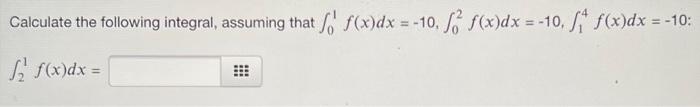 Calculate the following integral, assuming that ∫₀¹ f(x)dx = -10, ∫₀² f(x)dx = -10, ∫₁⁴ f(x)dx = -10:
∫₂¹ f(x)dx =